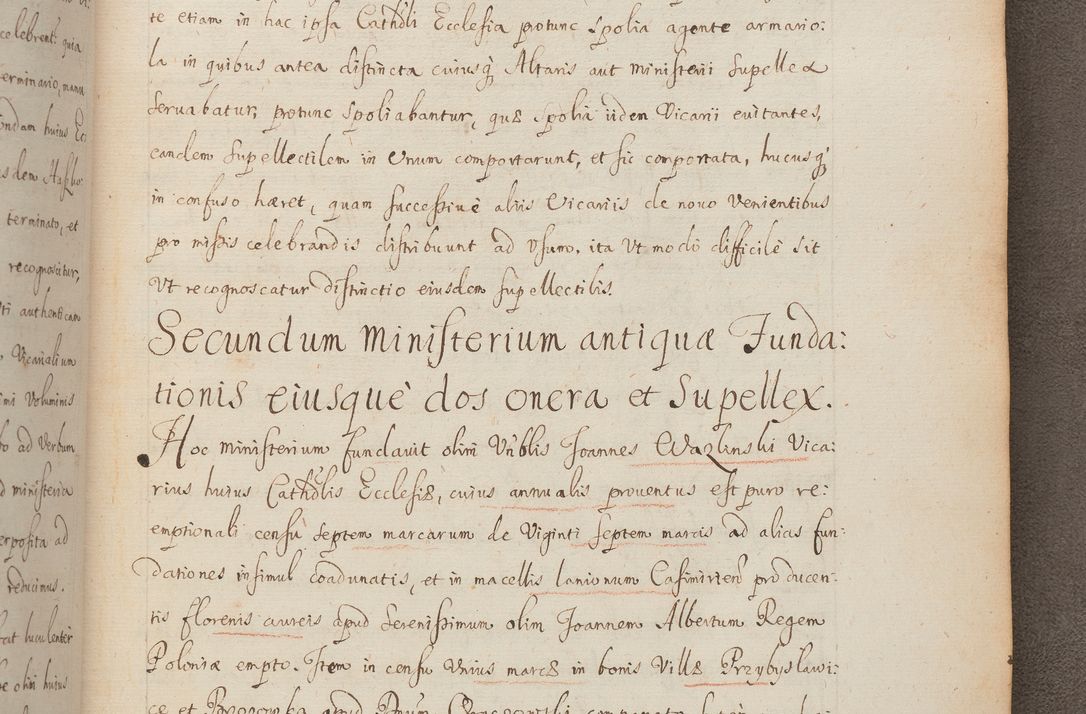 celebrent: quia
terminario, manu
huius
dem
terminato, et
recognoscitur,
authenticam
Vicarialium
Voluminis
ad Verbum
ministeria
ad
reducimus.
luculenter
olim huius
te etiam in hac ipsa Cathdli Ecclesia protunc spolia agente armario:
la in quibus antea distincta cuiusq Altaris aut ministerii supellex
seruabatur, protunc spoliabantur, quæ spolia iidem Vicarii euitantes,
eandem supellectilem in Vnum comportarunt, et sic comportata, hucusq
in confuso hæret, quam successiuè aliis Vicariis de nouo Venientibus
pro missis celebrandis distribuunt ad Vsum, ita Vt modò difficilè sit
Vt recognoscatur distinctio eiusdem supellectilis.
Secundum Ministerium antiquæ Funda:
tionis eiusquè dos onera et Supellex.
Hoc ministerium fundauit olim Vnblis Joannes Wazlinski Vica:
rius huius Cathdlis Ecclesiæ, cuius annualis prouentus est puro re:
emptionali censu septem marcarum de Viginti septem marcis ad alias fun:
dationes insimul coadunatis, et in macellis lanionum Casimirien producen:
tis florenis aureis apud Serenissimum olim Joannem Albertum Regem
Poloniæ empto. Item in censu Vnius marcæ in bonis Villæ Przybyslawi:
ce et apud